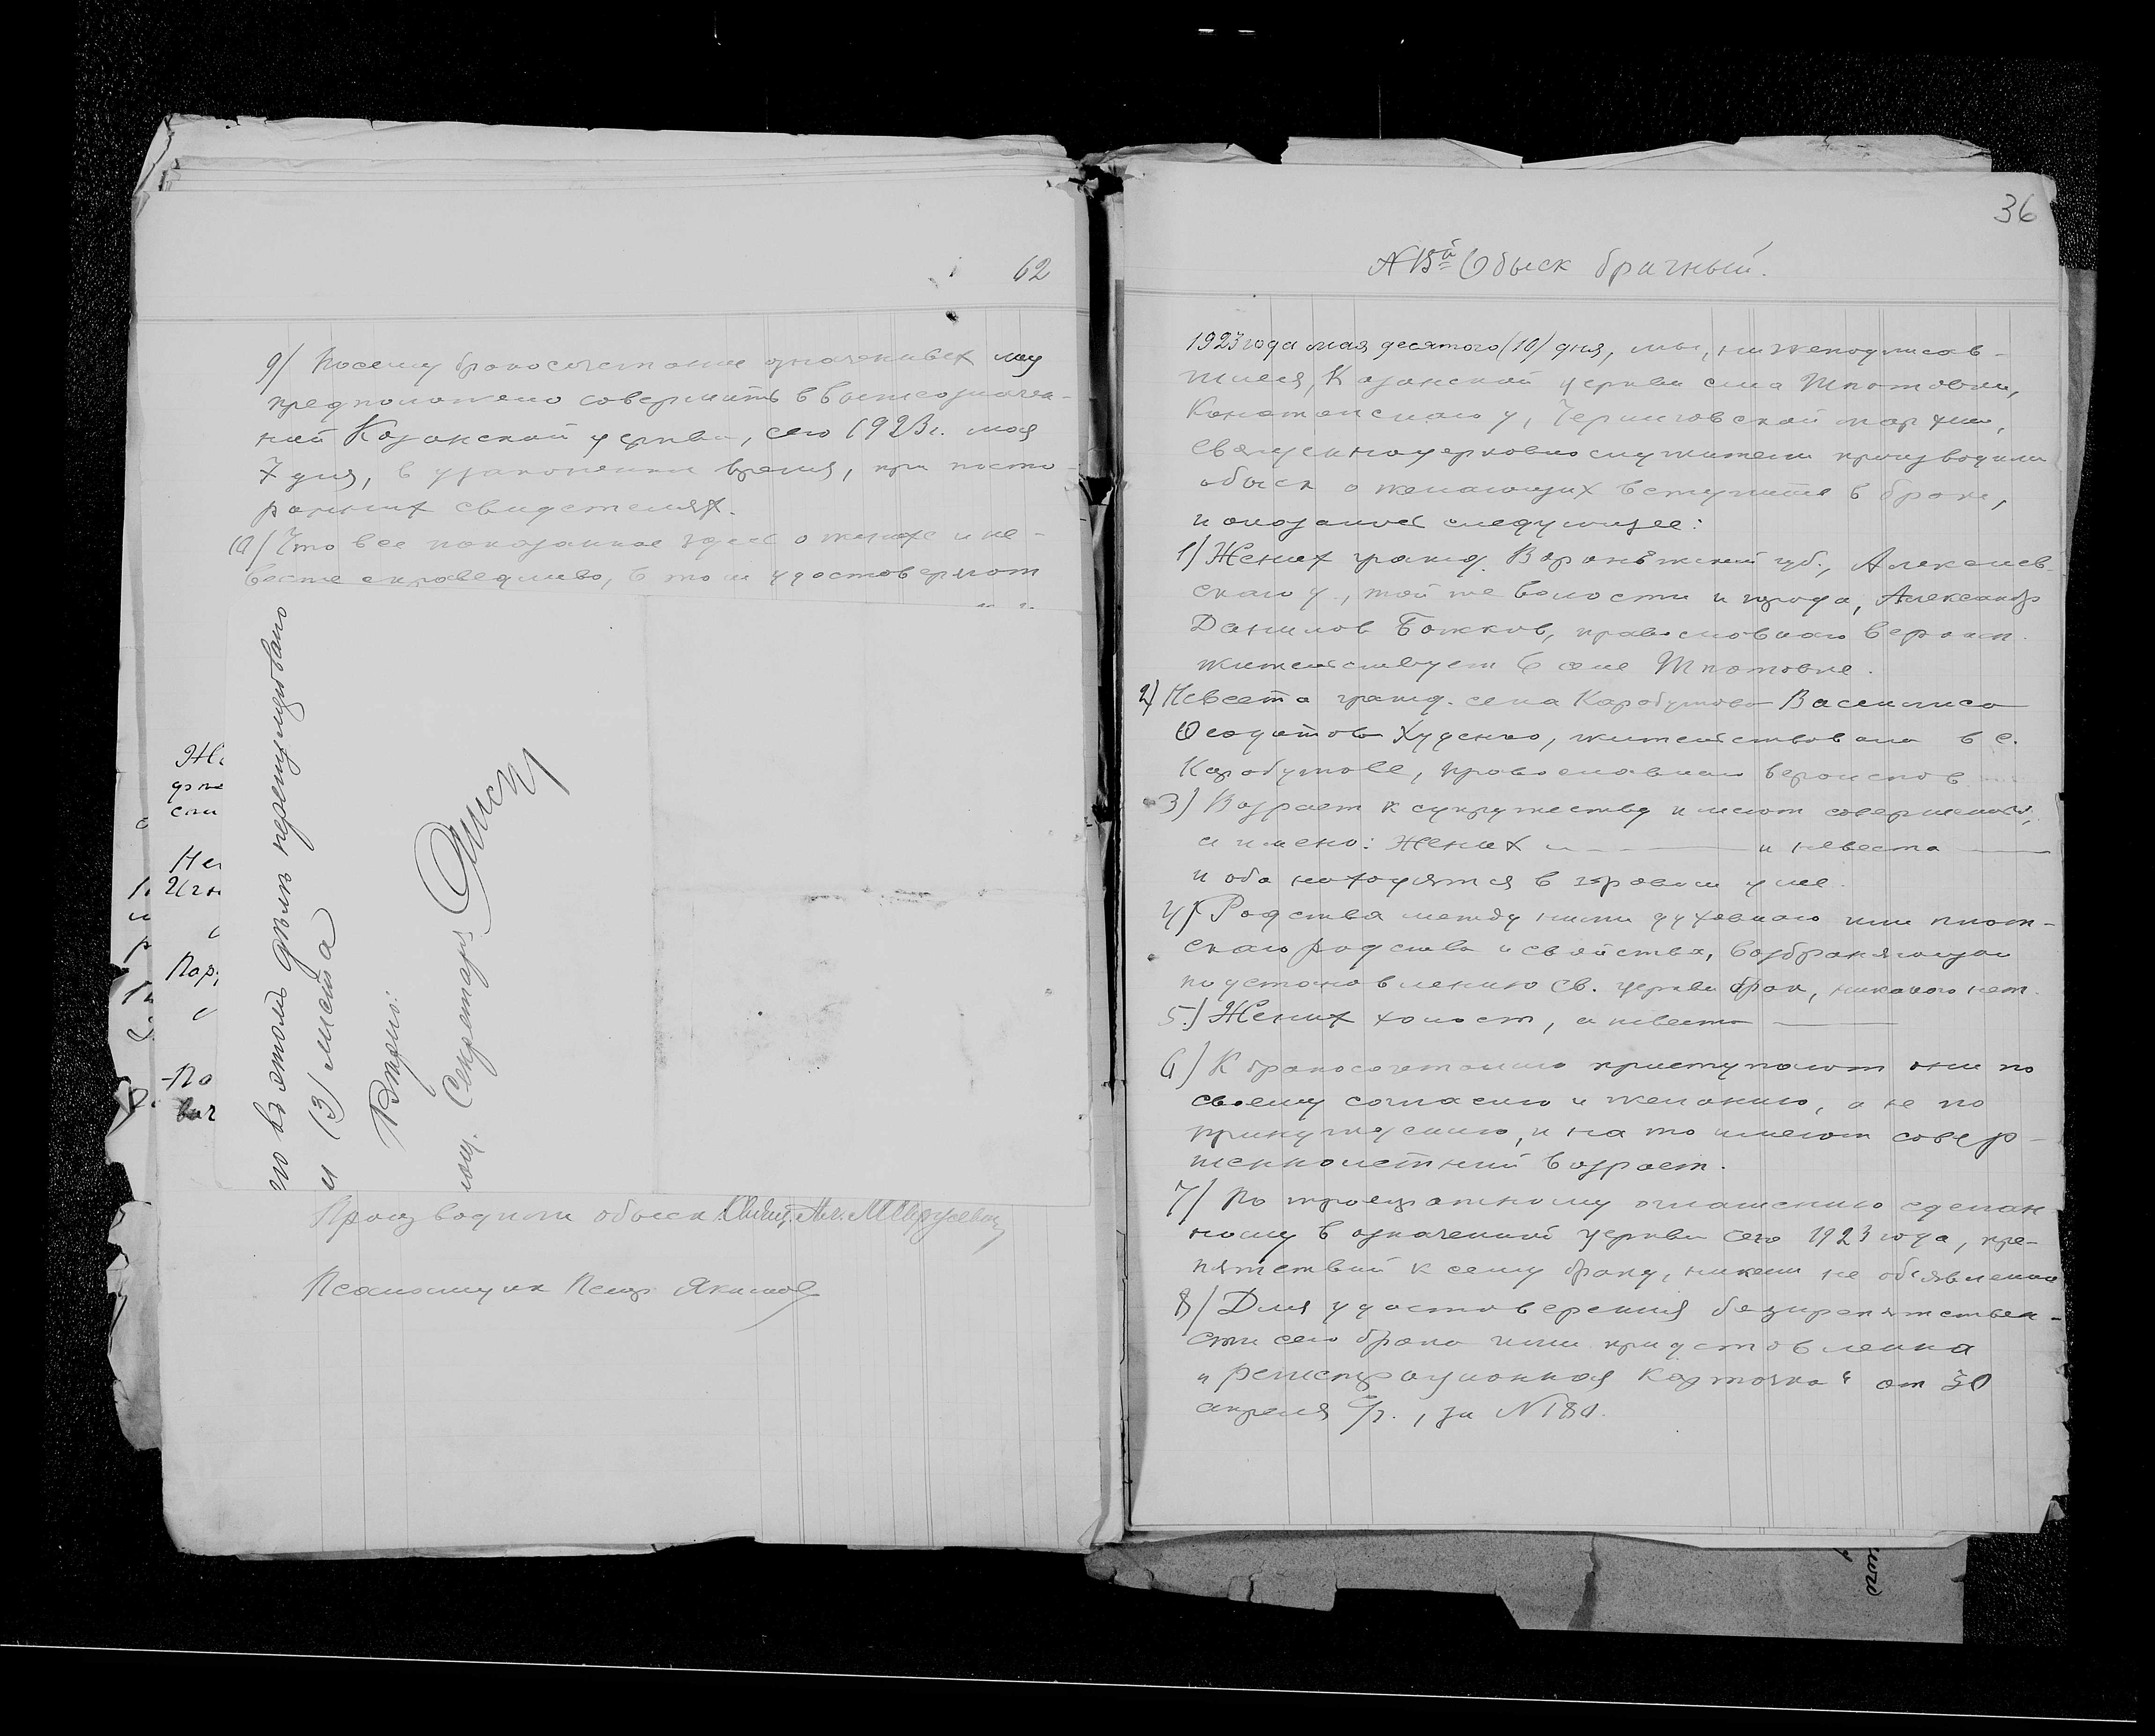 62
9) Посему бракосочетание означенных лиц
предположено совершить в вышеозначен-
ной Казанской церкви, сего 1923 г. мая
7 дня, в узаконенное время, при посто-
ронних свидетелях.
10) Что все показанное здесь о женихе и не-
весте справедливо, в том удостоверяют
Же
Не
Игн
Пор
По
вич
въ этомъ дѣлѣ перенумеровано
и (3) листа
Вѣрно:
Секретаря
Производили обыск:
Псаломщик Петр Якимов
36
№ 13й Обыск брачный.
1923 года мая десятого (10) дня, мы, нижеподписав-
шиеся, Казанской церкви села Шпотовки,
Конотопского у, Черниговской епархии,
священноцерковнослужители производили
обыск о желающих вступить в брак,
и оказалось следующее:
1) Жених гражд. Воронѣжской губ., Алексеев-
скаго у., той же волости и города, Александр
Данилов Божков, православнаго вероисп.
жительствует в селе Шпотовке.
2) Невеста гражд. села Карабутова Василиса
Феодотова Худенко, жительствовала в с.
Карабутове, православнаго вероиспов.
3) Возраст к супружеству имеют совершенный,
а имено: жених — и невеста —
и оба находятся в здравом уме.
4) Родства между ними духовнаго или плот-
скаго родства и свойства, возбраняющаго
по установлению св. церкви брак, никакого нет.
5.) Жених холост, а невеста —
6) К бракосочетанию приступают они по
своему согласию и желанию, а не по
принуждению, и на то имеют совер-
шеннолетний возраст.
7) По троекратному оглашению сделан-
ному в означенной церкви сего 1923 года, пре-
пятствий к сему браку, никем не объявлено
8) Для удостоверения безпрепятствен-
сти сего брака ими представлена
„регистрационная карточка" от 30
апреля с/г., за № 180.